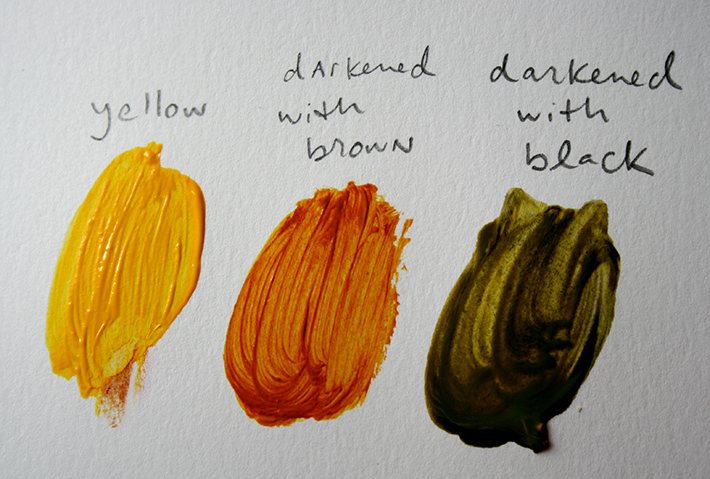 yellow
darkened
with
brown
darkened
with
black